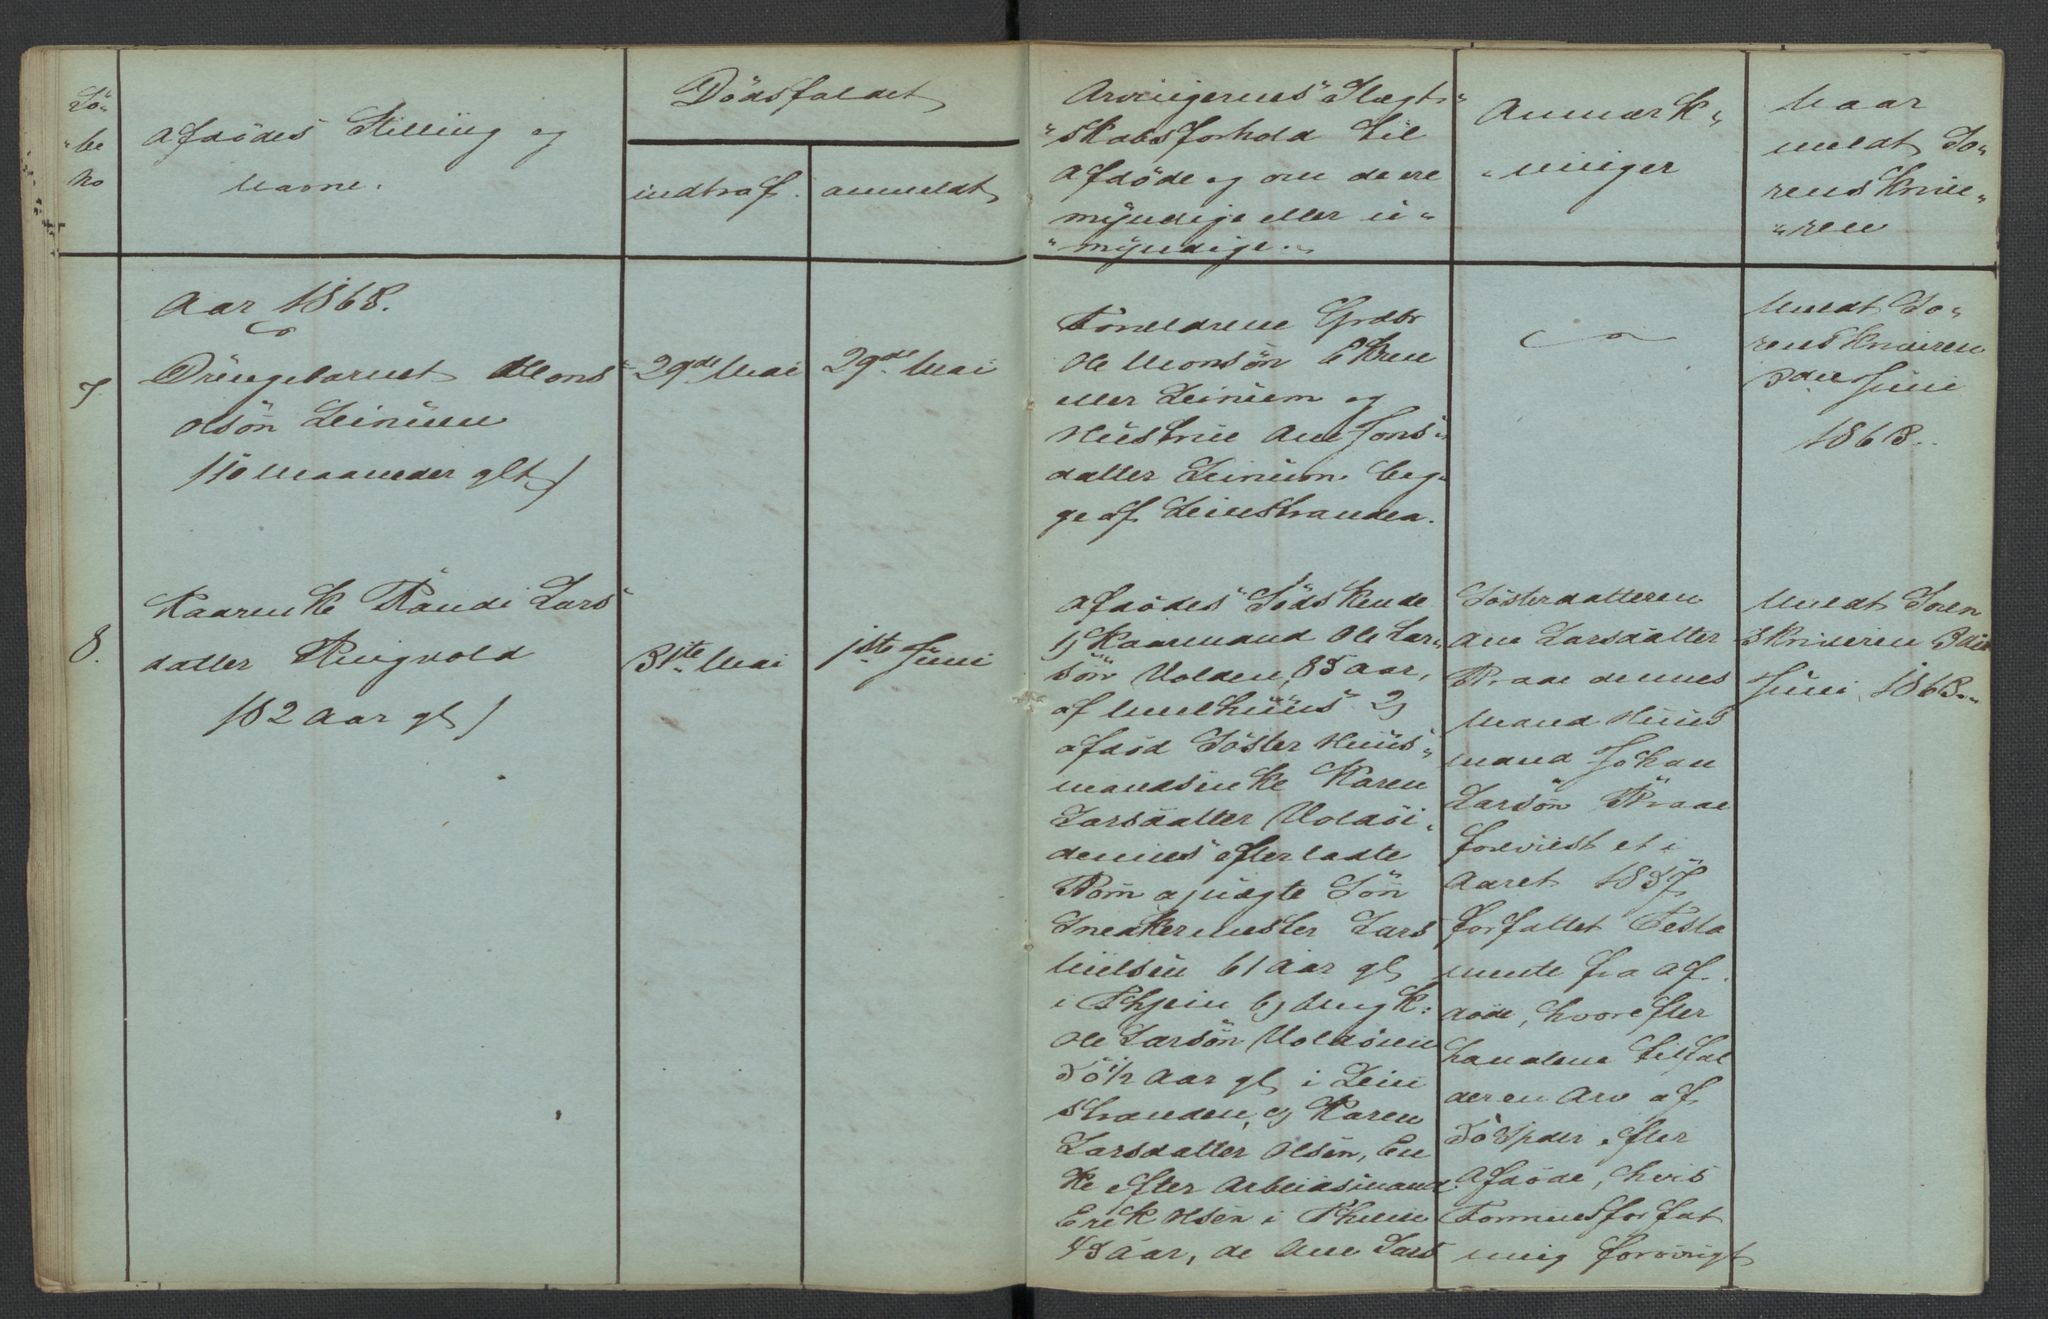 Lö-
"be
No
Afdödes Stilling og
Navne.
Dödsfaldet
indtraf.
anmeldt
Arvingernes Slægt"
"skabsforhold til
Afdöde og om de ere
myndige eller u"
"myndige.
Anmærk"
"ninger
Naar
meldt So"
renskrive"
"ren
Aar 1868.
7.
Drengebarnet Mons
Olsön Leinum
(10 Maaneder glt)
29de Mai
29de Mai
Forældrene Grdbr
Ole Monsön
eller Leinum og
Hustrue Ane Jons"
datter Leinum beg"
ge af Leinstranden.
Meldt So"
renskriveren
3die Juni
1868.
8.
Kaarenke Randi Lars"
datter Ringvold
(82 Aar gl)
31te Mai
1ste Juni
Afdödes Södskende
1) Kaarmand Ole Lar"
sön Volden, 85 Aar,
af Meelhuus 2)
afdöd Söster Huus"
mandsenke Karen
Larsdatter Voldsö"
dennes efterladte
Börn a) uægte Sön
Snedkermester Lars
Nielsen 61 Aar gl
i Thjem b) Ungk:
Ole Larsön Voldsöien
50½ Aar gl i Lein
stranden, c) Karen
Larsdatter Olsen, En
ke efter Arbeidsmand
Erik Olsen i Thjem
45 Aar, d) Ane Lars
Sösterdatteren
Ane Larsdatter
Braae dennes
Mand Huus
mand Johan
Larsön Braae
foreviist et i
Aaret 1857
forfattet Testa
mente fra Af"
döde, hvorefter
handlene tilfal
der en Arv af
50 Spdr efter
Afdöde, hvis
Formuesforfat
ning forövrigt
Meldt Soren
skriveren 3die
Juni 1868.